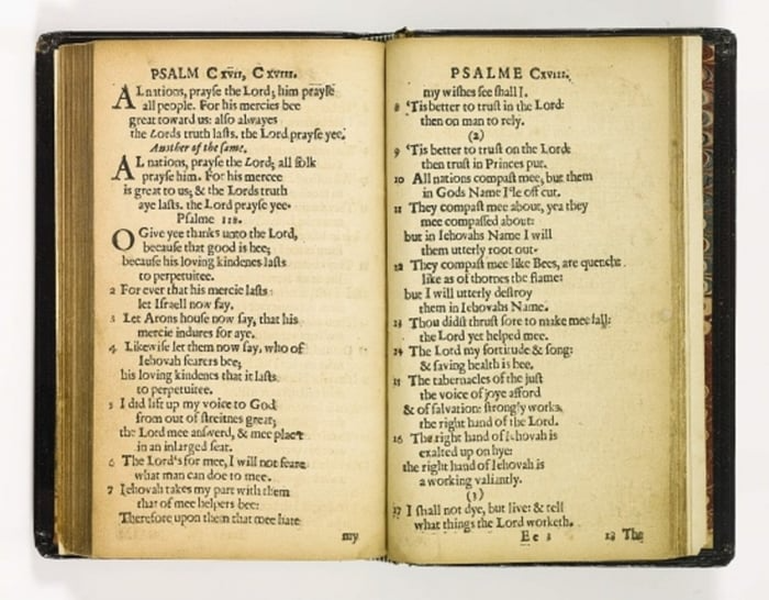 PSALM Cxvii, Cxviii.
AL nations, prayse the Lord; him prayse
all people. For his mercies bee
great toward us: also alwayes
the Lords truth lasts. the Lord prayse yee.
Another of the same.
AL nations, prayse the Lord; all folk
prayse him. For his mercee
is great to us; & the Lords truth
aye lasts. the Lord prayse yee.
Psalme 118.
O Give yee thanks unto the Lord,
because that good is hee;
because his loving kindenes lasts
to perpetuitee.
2 For ever that his mercie lasts
let Israell now say.
3 Let Arons house now say, that his
mercie indures for aye.
4 Likewise let them now say, who of
Iehovah fearers bee;
his loving kindenes that it lasts
to perpetuitee.
5 I did lift up my voice to God
from out of streitnes great;
the Lord mee answerd, & mee plac't
in an inlarged seat.
6 The Lord's for mee, I will not feare
what man can doe to mee.
7 Iehovah takes my part with them
that of mee helpers bee:
Therefore upon them that mee hate
my
PSALME Cxviii.
my wishes see shall I.
8 'Tis better to trust in the Lord:
then on man to rely.
(2)
9 'Tis better to trust on the Lord:
then trust in Princes put.
10 All nations compast mee, but them
in Gods Name I'le off cut.
11 They compast mee about, yea they
mee compassed about:
but in Iehovahs Name I will
them utterly root out.
12 They compast mee like Bees, are quencht
like as of thornes the flame:
but I will utterly destroy
them in Iehovahs Name.
13 Thou didst thrust sore to make mee fall:
the Lord yet helped mee.
14 The Lord my fortitude & song:
& saving health is hee.
15 The tabernacles of the just
the voice of joye afford
& of salvation: strongly works
the right hand of the Lord.
16 The right hand of Iehovah is
exalted up on hye:
the right hand of Iehovah is
a working valiantly.
(3)
17 I shall not dye, but live: & tell
what things the Lord worketh.
Ee 3 18 The